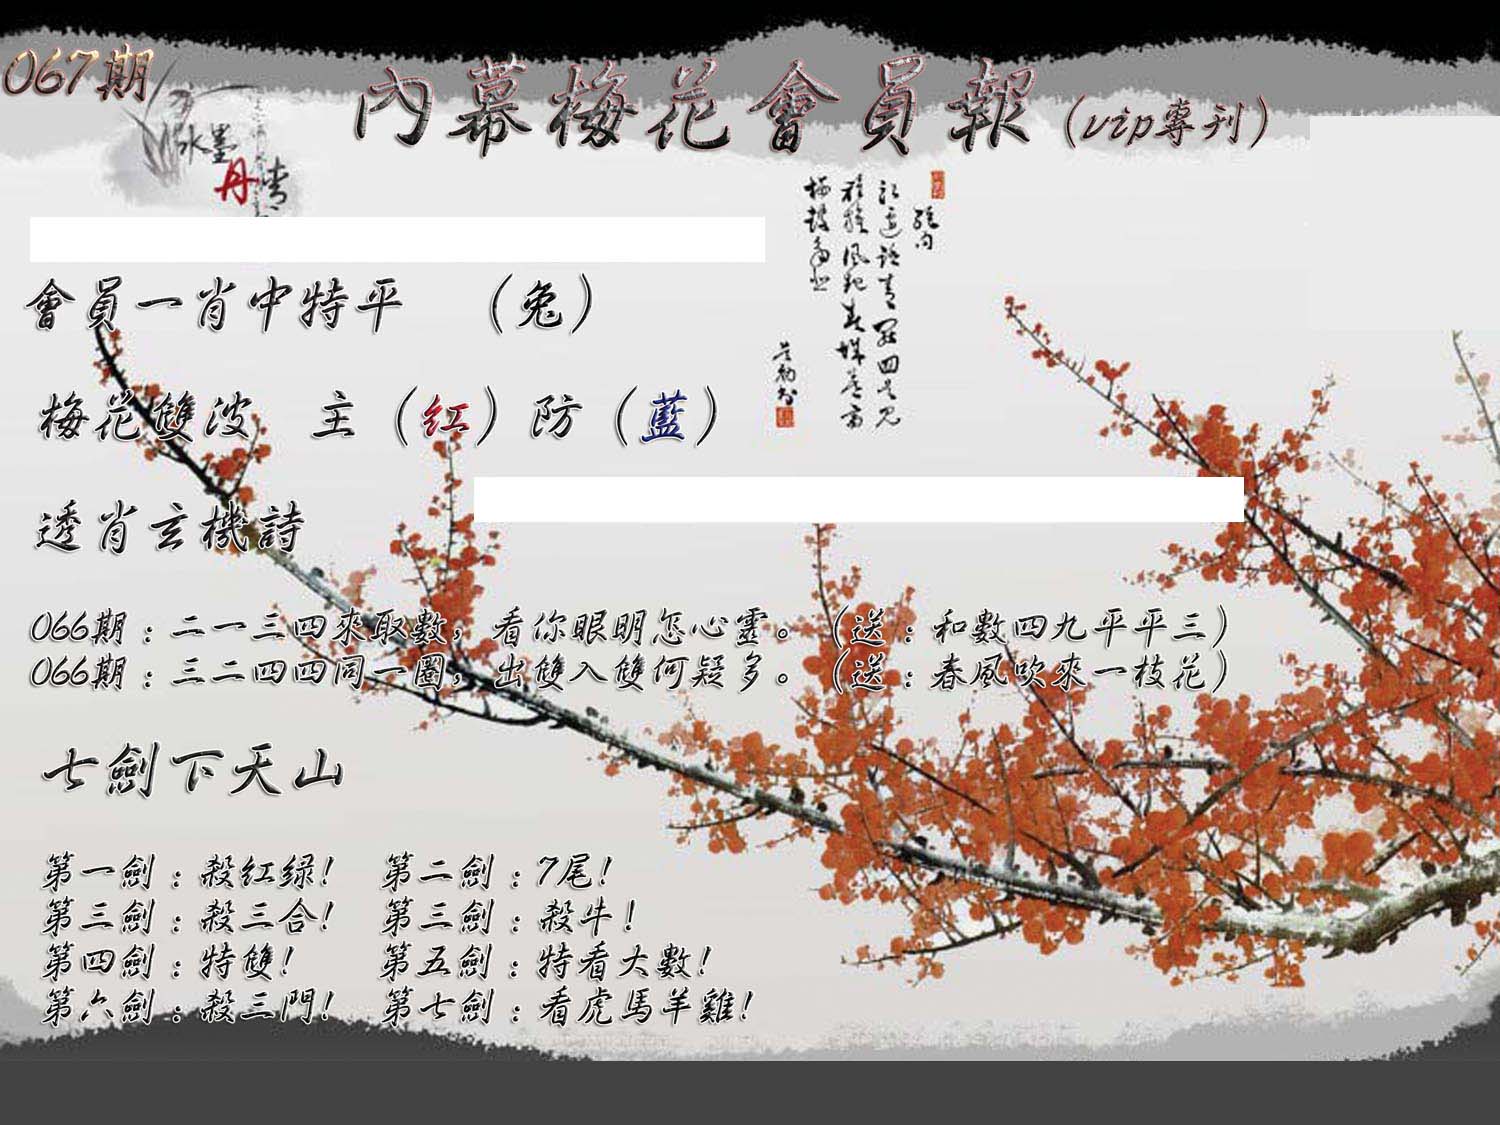 067期
內幕梅花會員報(vip專刊)
水墨
丹青
會員一肖中特平 (兔)
梅花雙波 主(紅)防(藍)
透肖玄機詩
066期:二一三四來取數,看你眼明怎心靈。(送:和數四九平平三)
066期:三二四四同一圈,出雙入雙何疑多。(送:春風吹來一枝花)
七劍下天山
第一劍:殺紅绿! 第二劍:7尾!
第三劍:殺三合! 第三劍:殺牛!
第四劍:特雙! 第五劍:特看大數!
第六劍:殺三門! 第七劍:看虎馬羊雞!